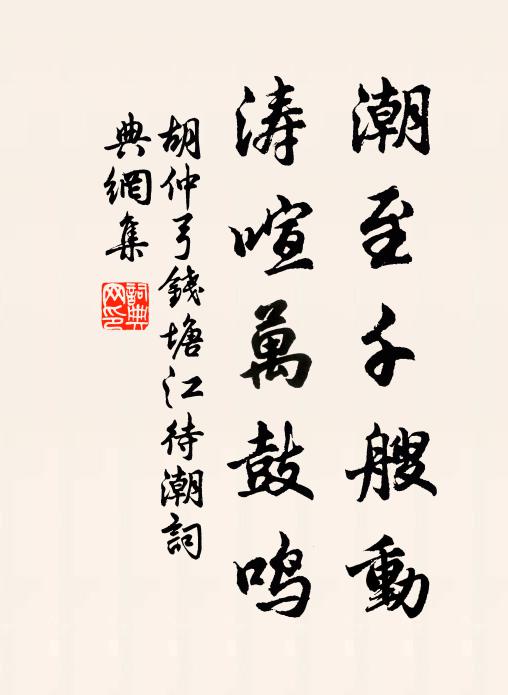 潮至千艘動
涛喧萬鼓鸣
胡仲弓錢塘江待潮詞
典網集
詞典网印